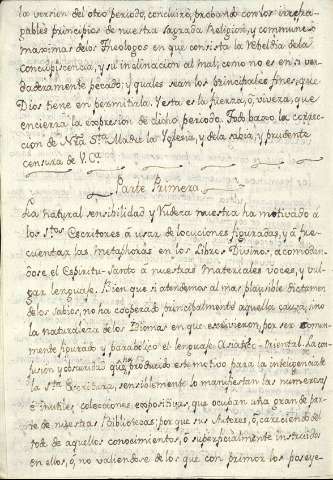 la version del otro periodo, concluirè, probando con los irrepa-
rables principios de nuestra sagrada Religion, y comunes
maximas de los Theologos en que consista la rebeldia de la
concupiscencia, y su inclinacion al mal; como no es en si ver-
daderamente pecado; y quales sean los principales fines, que
Dios tiene en permitirla. Y esta es la fuerza, ò, viveza, que
encierra la expresion de dicho periodo. Todo baxo la correc-
cion de Ntra Sta Madre la Iglesia, y de la sabia, y prudente
censura de V.
Parte Primera
La natural sensibilidad y rudeza nuestra ha motivado à
los Stos Escritores à usar de locuciones figuradas, y à fre-
cuentar las metaphoras en los Libros Divinos, acomodan-
dose el Espiritu-Santo à nuestras materiales voces, y vul-
gar lenguaje. Bien que si atendemos al mas plausible dictamen
de los sabios, no ha cooperado principalmente aquella causa, sino
la naturaleza de los Idiomas en que escrivieron, por ser comun-
mente figurado y parabolico el lenguaje Asiatico-Oriental. La con-
fusion y obscuridad que ha producido este motivo para la inteligencia de
la Sta Escritura, sensiblemente lo manifiestan las numerosas
è inutiles colecciones expositivas, que ocupan una gran de par-
te de nuestras Bibliotecas; por que sus Autores, ò, careciendo del
todo de aquellos conocimientos, ò superficialmente instruidos
en ellos, ò, no valiendose de los que con primor los posey-